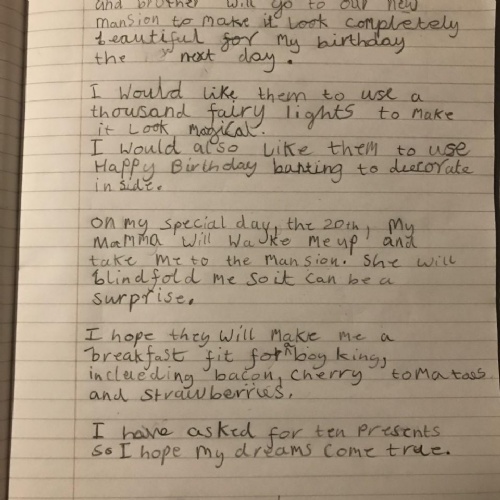 and brother will go to our new
mansion to make it look completely
beautiful for my birthday
the next day.
I would like them to use a
thousand fairy lights to make
it look magical.
I would also like them to use
Happy Birthday banting to decorate
inside.
on my special day, the 20th, My
Mamma will wake me up and
take me to the Mansion. She will
blindfold me so it can be a
surprise.
I hope they will make me a
breakfast fit for a boy king,
inclueding bacon, cherry tomatoes
and strawberries.
I have asked for ten presents
so I hope my dreams come true.